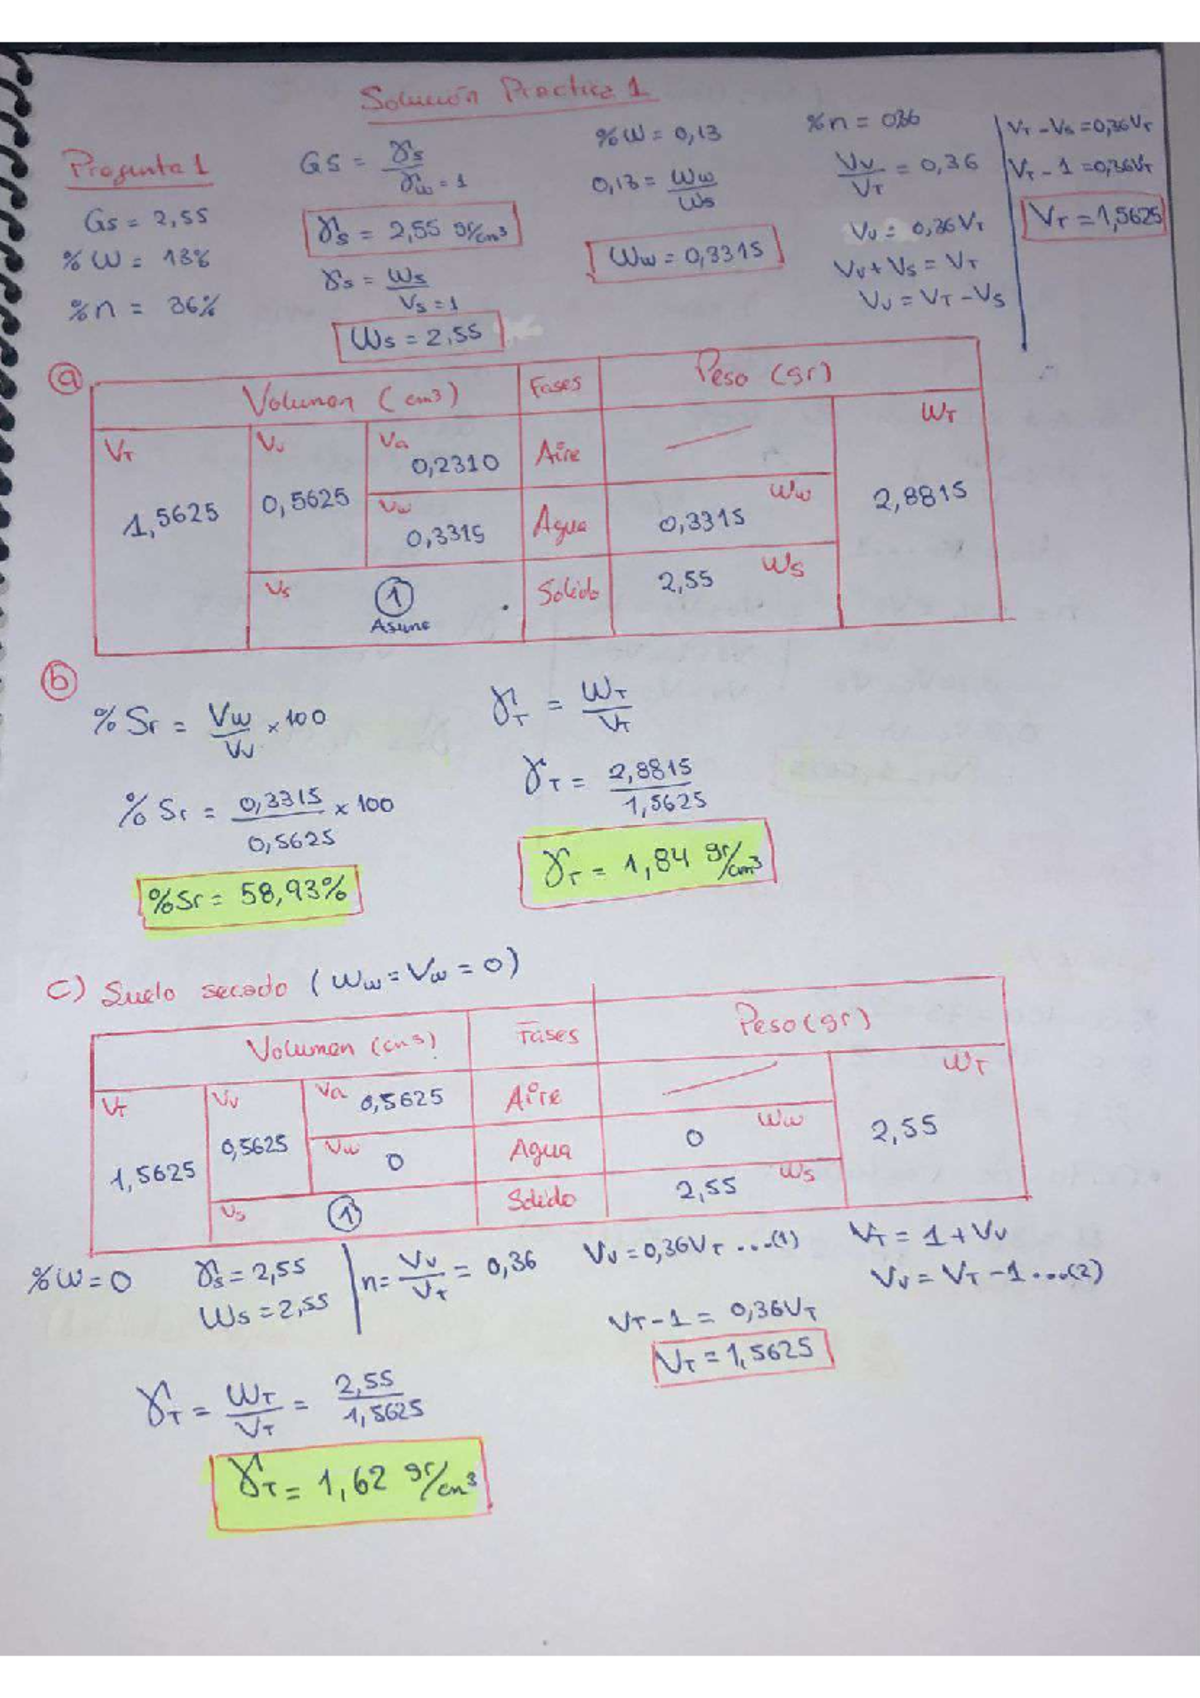 Solución Practica 1
Pregunta 1
Gs = 2,55
% W = 13%
% n = 36%
GS = γs / γw = 1
γs = 2,55 gr/cm³
γs = Ws / Vs = 1
Ws = 2,55
% W = 0,13
0,13 = Ww / Ws
Ww = 0,3315
% n = 0,36
Vv / VT = 0,36
Vv = 0,36 VT
Vv + Vs = VT
Vv = VT - Vs
VT - Vs = 0,36 VT
VT - 1 = 0,36 VT
VT = 1,5625
a
Volumen (cm3) Fases Peso (gr)
VT Vv Va WT
0,2310 Aire
1,5625 0,5625 Vw Ww 2,8815
0,3315 Agua 0,3315
Vs 1 Solido 2,55 Ws
Asume
b
% Sr = Vw / Vv x 100
% Sr = 0,3315 / 0,5625 x 100
% Sr = 58,93%
γT = WT / VT
γT = 2,8815 / 1,5625
γT = 1,84 gr/cm3
c) Suelo secado (Ww = Vw = 0)
Volumen (cm3) Fases Peso (gr)
VT Vv Va 0,5625 Aire WT
1,5625 0,5625 Vw 0 Agua 0 Ww 2,55
Vs 1 Solido 2,55 Ws
% W = 0
γs = 2,55
Ws = 2,55
n = Vv / VT = 0,36
Vv = 0,36 VT ...(1)
VT = 1 + Vv
Vv = VT - 1 ...(2)
VT - 1 = 0,36 VT
VT = 1,5625
γT = WT / VT = 2,55 / 1,5625
γT = 1,62 gr/cm3